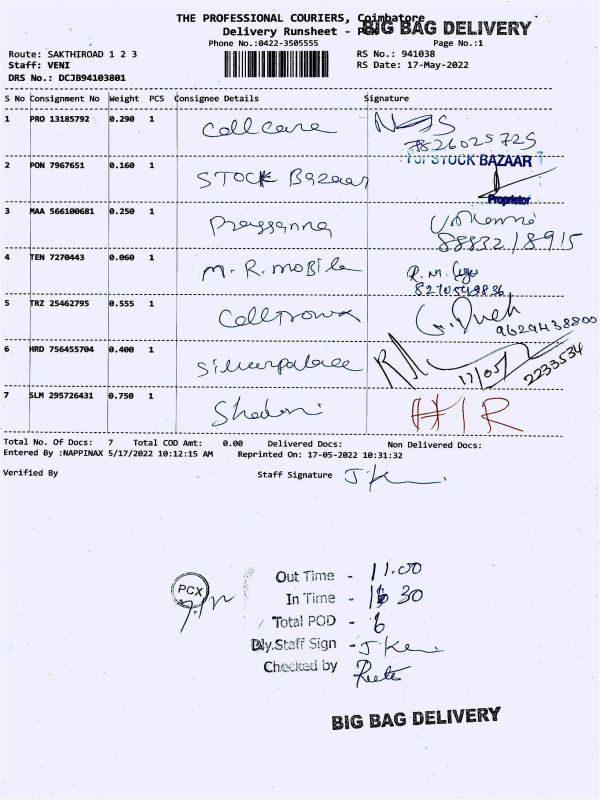 THE PROFESSIONAL COURIERS, Coimbatore
Delivery Runsheet - PCX
BIG BAG DELIVERY
Phone No.:0422-3505555
Page No.:1
Route: SAKTHIROAD 1 2 3
RS No.: 941038
Staff: VENI
RS Date: 17-May-2022
DRS No.: DCJB94103801
S No Consignment No Weight PCS Consignee Details Signature
1 PRO 13185792 0.290 1 Callcare
7826025725
2 PON 7967651 0.160 1 STOCK Bazaar
For STOCK BAZAAR
Proprietor
3 MAA 566100681 0.250 1 Prassanna
8883218915
4 TEN 7270443 0.060 1 M.R. mobile
5 TRZ 25462795 0.555 1
9629438800
6 HRD 756455704 0.400 1 Silverpalace
17/05
2233534
7 SLM 295726431 0.750 1
H/R
Total No. Of Docs: 7 Total COD Amt: 0.00 Delivered Docs: Non Delivered Docs:
Entered By :NAPPINAX 5/17/2022 10:12:15 AM Reprinted On: 17-05-2022 10:31:32
Verified By Staff Signature
PCX
Out Time - 11.00
In Time - 30
Total POD - 6
Dly.Staff Sign -
Checked by
BIG BAG DELIVERY